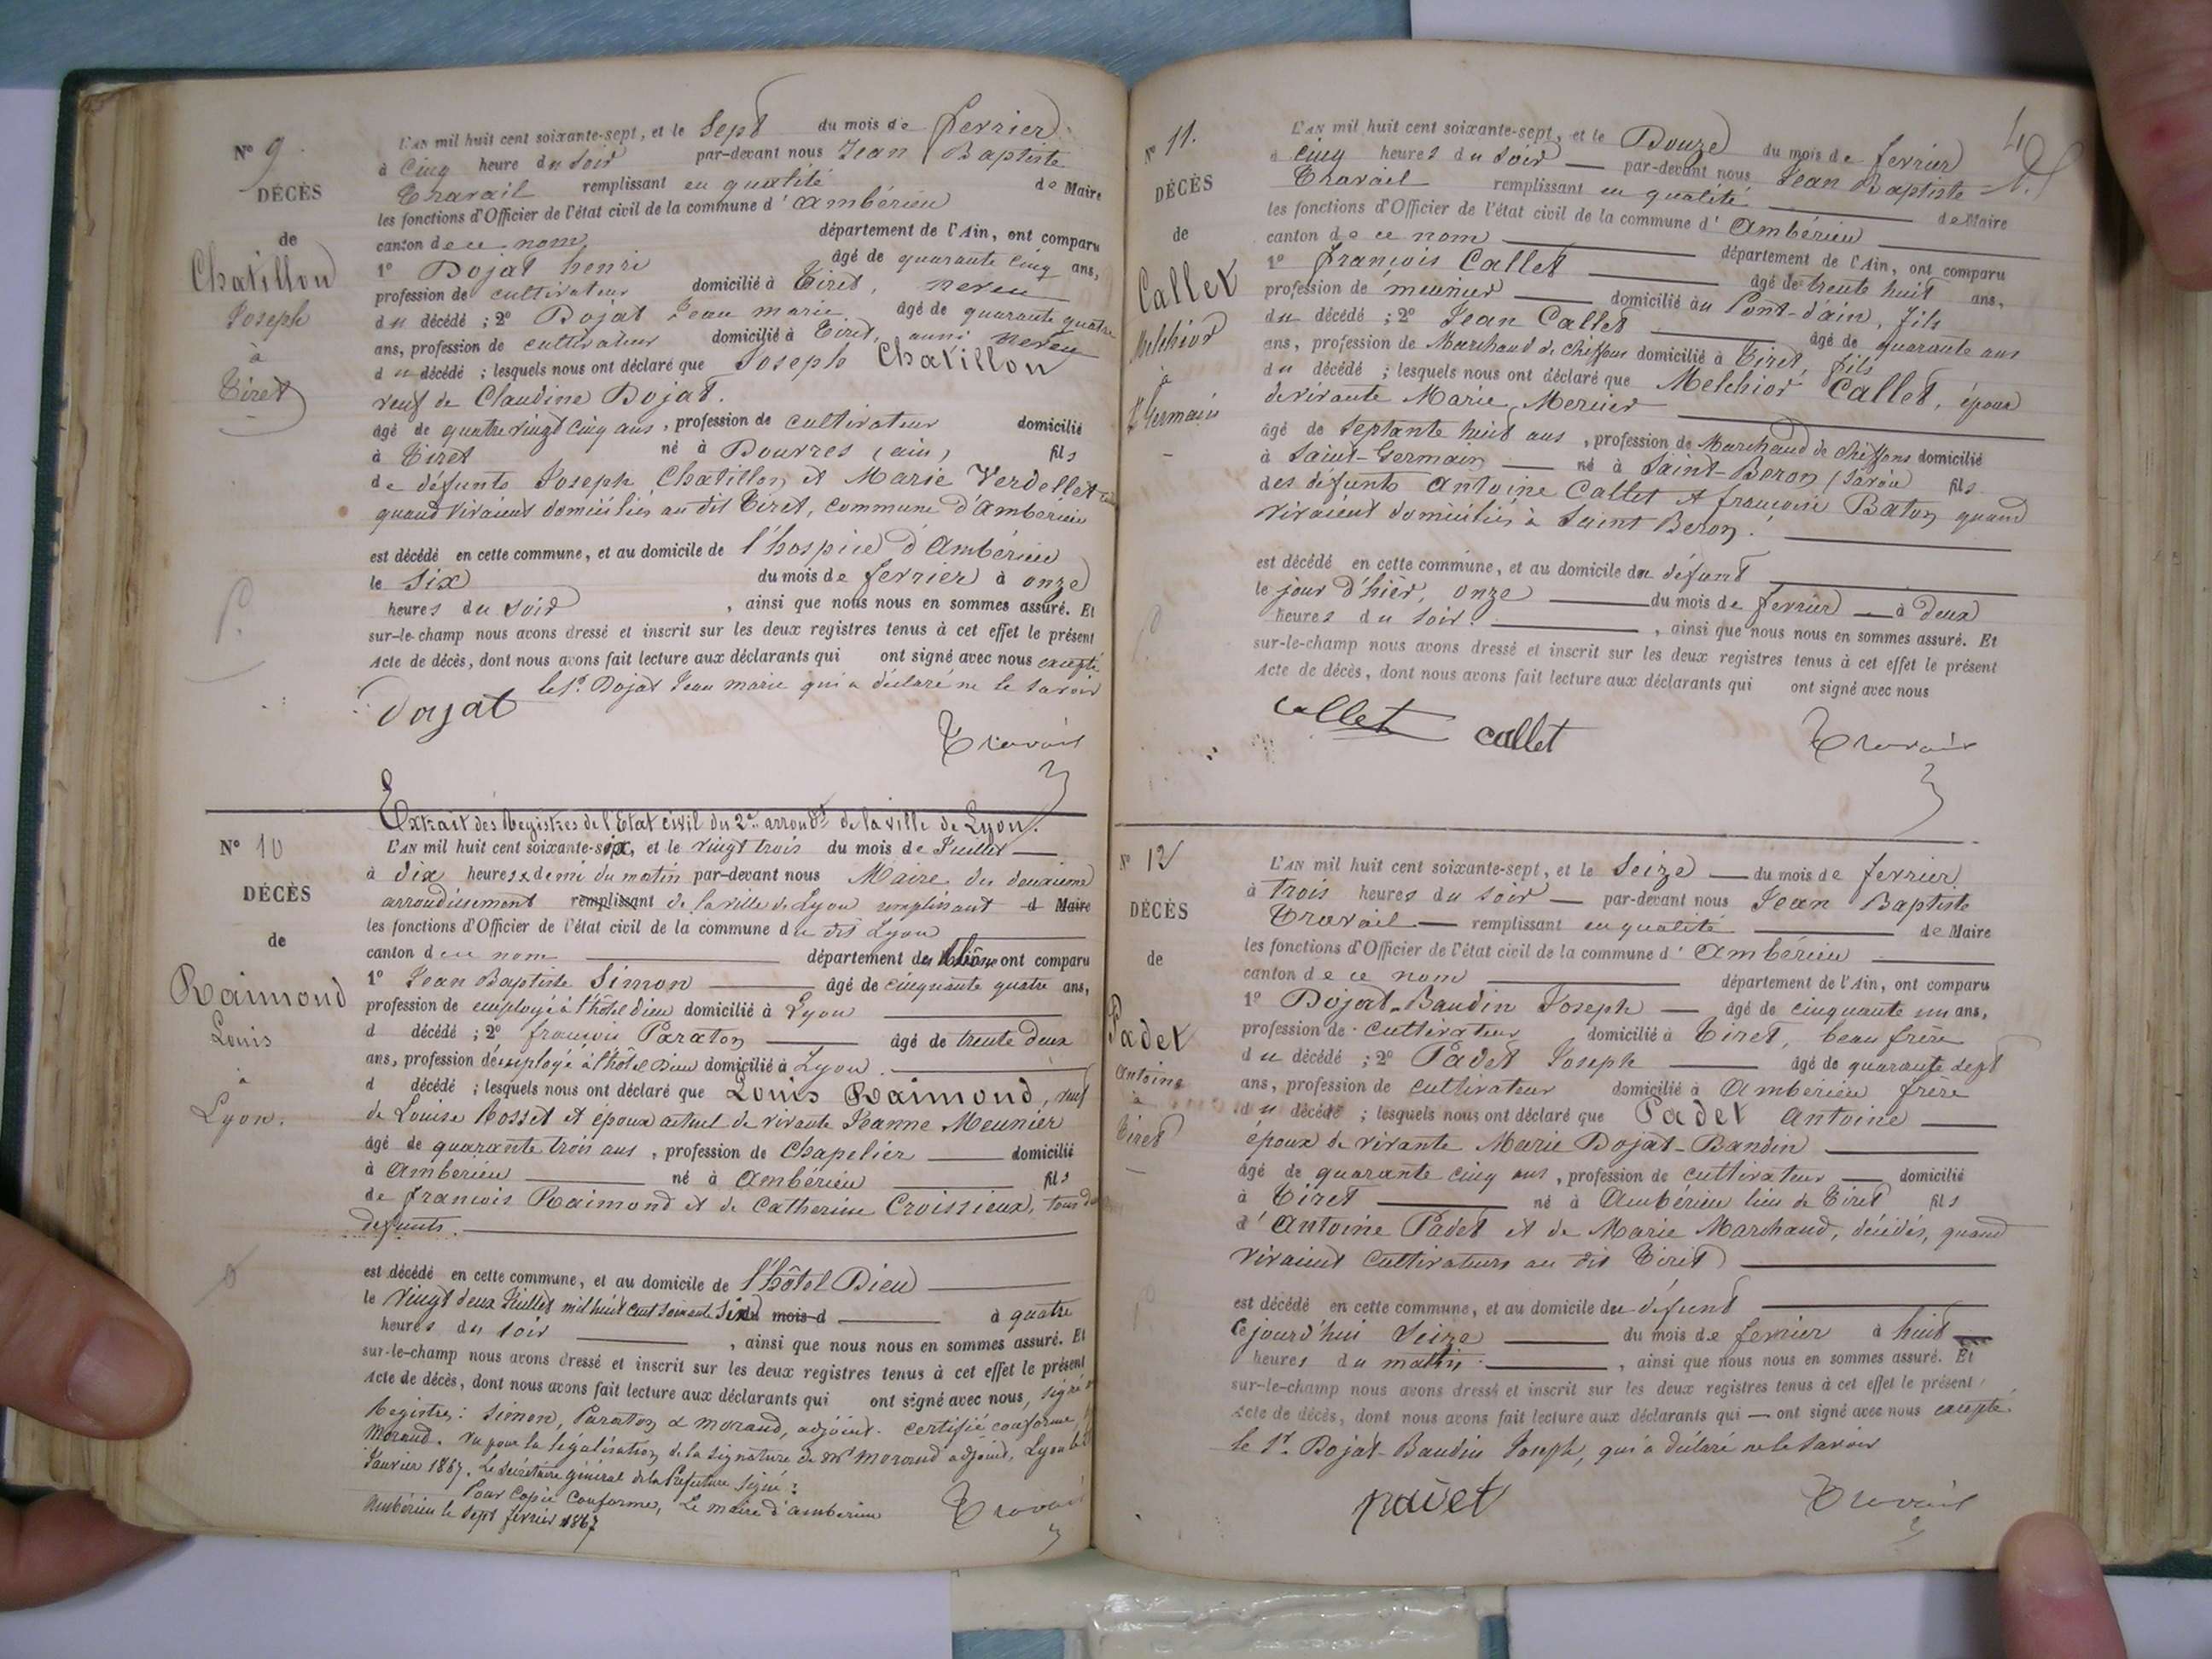 N° 9.
DÉCÈS
de
Chatillon
Joseph
à
Tiret
L'AN mil huit cent soixante-sept, et le Sept du mois de fevrier
à Cinq heure du Soir par-devant nous Jean Baptiste
Travail remplissant en qualité de Maire
les fonctions d'Officier de l'état civil de la commune d'Ambérieu
canton de ce nom, département de l'Ain, ont comparu
1° Dojat henri âgé de quarante cinq ans,
profession de cultivateur domicilié à Tiret, neveu
du décédé ; 2° Dojat Jean marie âgé de quarante quatre
ans, profession de cultivateur domicilié à Tiret, aussi neveu
du décédé ; lesquels nous ont déclaré que Joseph Chatillon
veuf de Claudine Dojat.
âgé de quatre vingt cinq ans, profession de cultivateur domicilié
à Tiret né à Douvres (ain) fils
de défunts Joseph Chatillon et Marie Verdellet
quand vivaient domiciliés au dit Tiret, commune d'Amberieu
est décédé en cette commune, et au domicile de l'hospice d'Ambérieu
le Six du mois de fevrier à onze
heures du soir, ainsi que nous nous en sommes assuré. Et
sur-le-champ nous avons dressé et inscrit sur les deux registres tenus à cet effet le présent
Acte de décès, dont nous avons fait lecture aux déclarants qui ont signé avec nous excepté
le Sr. Dojat Jean marie qui a déclaré ne le savoir
Dojat
Travail
N° 10
DÉCÈS
de
Raimond
Louis
à
Lyon.
Extrait des Registres de l'Etat civil du 2e arrondt de la ville de Lyon.
L'AN mil huit cent soixante-six, et le vingt trois du mois de Juillet
à dix heures & demi du matin par-devant nous Maire du deuxieme
arrondissement remplissant de la ville de Lyon remplissant d Maire
les fonctions d'Officier de l'état civil de la commune du dit Lyon
canton de ce nom département du Rhône ont comparu
1° Jean Baptiste Simon âgé de cinquante quatre ans,
profession de employé à l'hôtel dieu domicilié à Lyon
d décédé ; 2° françois Paraton âgé de trente deux
ans, profession d'employé à l'hôtel Dieu domicilié à Lyon.
d décédé ; lesquels nous ont déclaré que Louis Raimond, veuf
de Louise Rosset et époux actuel de vivante Jeanne Meunier
âgé de quarante trois ans, profession de Chapelier domicilié
à Ambérieu né à Ambérieu fils
de françois Raimond et de Catherine Croissieux, tous deux
defunts.
est décédé en cette commune, et au domicile de l'hôtel Dieu
le Vingt deux Juillet mil huit cent soixante Six du mois d à quatre
heures du soir, ainsi que nous nous en sommes assuré. Et
sur-le-champ nous avons dressé et inscrit sur les deux registres tenus à cet effet le présent
Acte de décès, dont nous avons fait lecture aux déclarants qui ont signé avec nous, signé
Registres: Simon, Paraton & morand, adjoint. certifié conforme,
Morand. Vu pour la légalisation de la signature de Mr Morand adjoint, Lyon le
Janvier 1867. Le Secrétaire général de la Préfecture Signé:
Pour Copie Conforme, Le maire d'amberieu
Ambérieu le Sept février 1867
Travail
N° 11.
DÉCÈS
de
Callet
Melchior
à
St Germain
L'AN mil huit cent soixante-sept, et le Douze du mois de fevrier
à cinq heures du soir par-devant nous Jean Baptiste
Travail remplissant en qualité de Maire
les fonctions d'Officier de l'état civil de la commune d'Ambérieu
canton de ce nom département de l'Ain, ont comparu
1° François Callet âgé de trente huit ans,
profession de meunier domicilié au Pont-d'ain, fils
du décédé ; 2° Jean Callet âgé de quarante ans
ans, profession de Marchand de chiffons domicilié à Tiret, fils
du décédé ; lesquels nous ont déclaré que Melchior Callet, époux
de vivante Marie Mercier
âgé de Septante huit ans, profession de Marchand de chiffons domicilié
à Saint-Germain né à Saint-Beron (Savoie) fils
des défunts Antoine Callet et françoise Baton quand
vivaient domiciliés à Saint Beron.
est décédé en cette commune, et au domicile du défunt
le jour d'hier, onze du mois de fevrier à deux
heures du soir., ainsi que nous nous en sommes assuré. Et
sur-le-champ nous avons dressé et inscrit sur les deux registres tenus à cet effet le présent
Acte de décès, dont nous avons fait lecture aux déclarants qui ont signé avec nous
callet callet
Travail
N° 12
DÉCÈS
de
Padet
Antoine
à
Tiret
L'AN mil huit cent soixante-sept, et le Seize du mois de fevrier
à trois heures du soir par-devant nous Jean Baptiste
Travail remplissant en qualité de Maire
les fonctions d'Officier de l'état civil de la commune d'Ambérieu
canton de ce nom département de l'Ain, ont comparu
1° Dojat-Baudin Joseph âgé de cinquante un ans,
profession de cultivateur domicilié à Tiret, beau frère
du décédé ; 2° Padet Joseph âgé de quarante sept
ans, profession de cultivateur domicilié à Ambérieu frère
du décédé ; lesquels nous ont déclaré que Padet Antoine
époux de vivante Marie Dojat-Baudin
âgé de quarante cinq ans, profession de cultivateur domicilié
à Tiret né à Ambérieu lieu de Tiret fils
d'Antoine Padet et de Marie Marchand, décédés, quand
vivaient cultivateurs au dit Tiret
est décédé en cette commune, et au domicile du défunt
Cejourd'hui Seize du mois de fevrier à huit
heures du matin, ainsi que nous nous en sommes assuré. Et
sur-le-champ nous avons dressé et inscrit sur les deux registres tenus à cet effet le présent
Acte de décès, dont nous avons fait lecture aux déclarants qui ont signé avec nous excepté
le Sr. Dojat-Baudin Joseph, qui a déclaré ne le savoir
padet
Travail